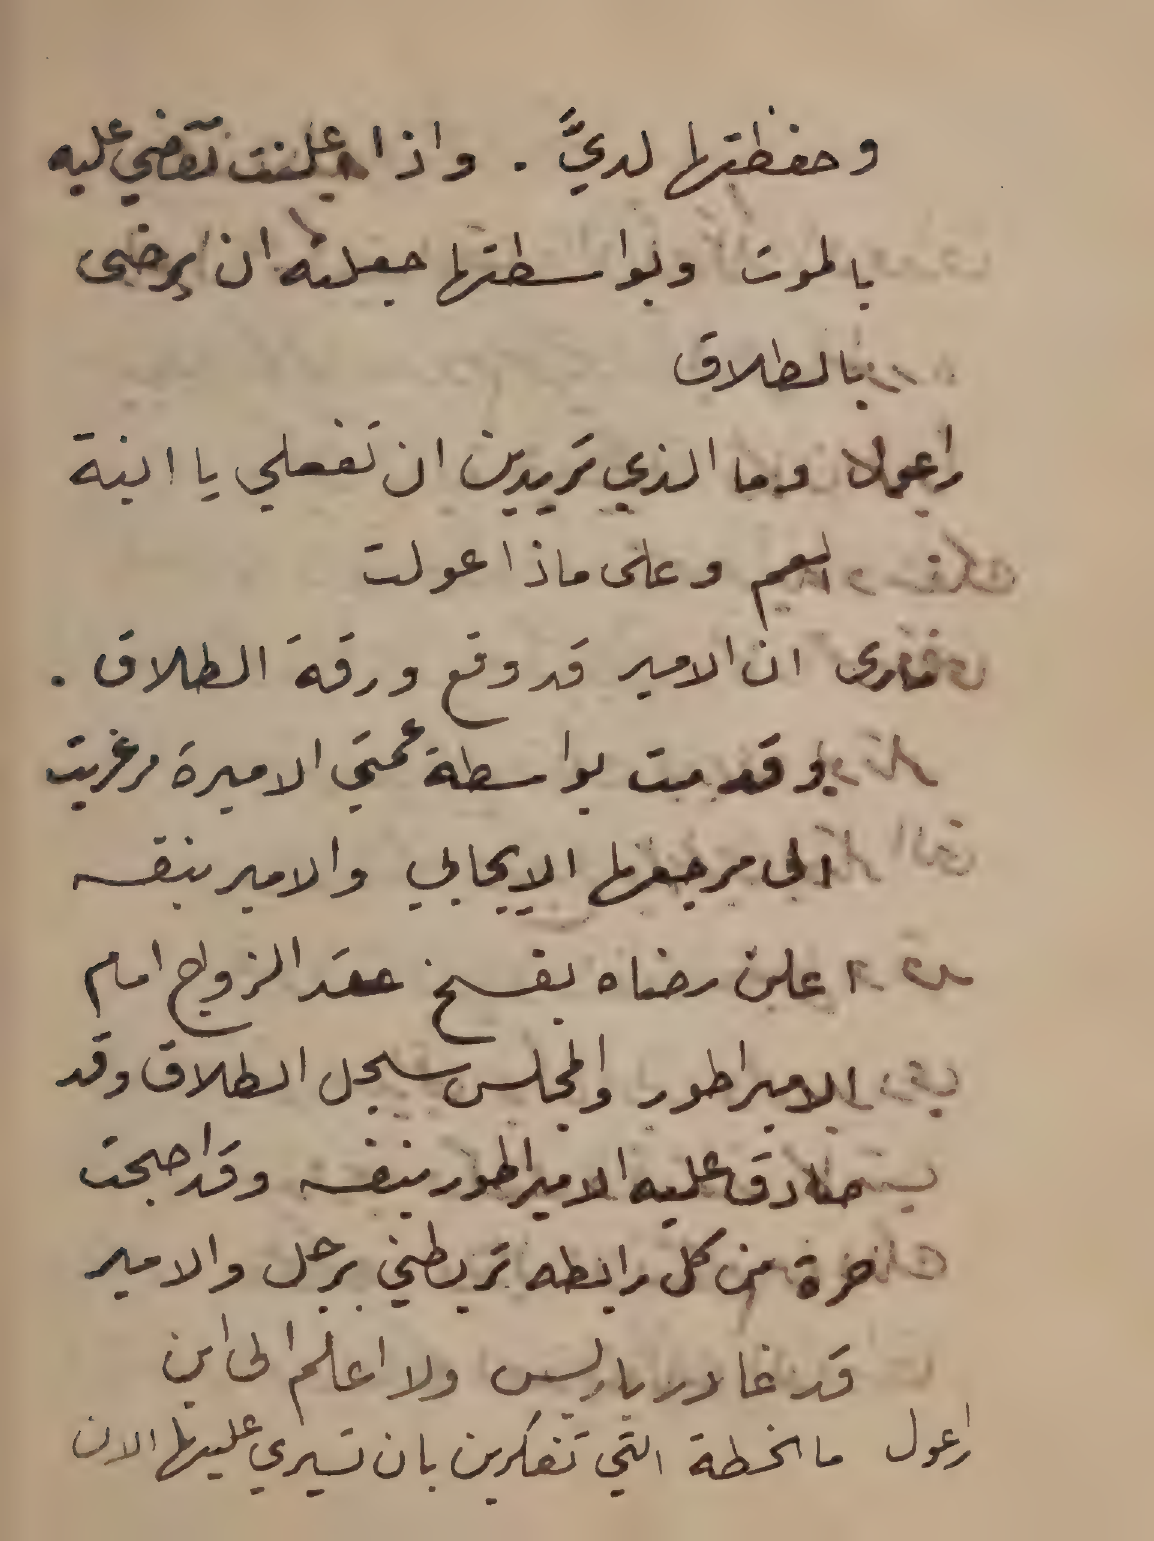 وحفظتها لديَّ . واذا اعلنت تقضي عليه
بالموت وبواسطتها جعلته ان يرضى
بالطلاق
راعول وما الذي تريدين ان تفعلي يا ابنة
العم وعلى ماذا عولت
ان الامير قد وقع ورقة الطلاق .
وقدمت بواسطة عمتي الاميرة مرغريت
الى مرجعها الايجابي والامير بنفسه
اعلن رضاه بفسخ عقد الزواج امام
الامبراطور والمجلس سجل الطلاق وقد
صادق عليه الامبراطور بنفسه وقد اصبحت
حرة من كل رابطه تربطني برجل والامير
قد غادر باريس ولا اعلم الى اين
راعول ما الخطة التي تفكرين بان تسيري عليها الان